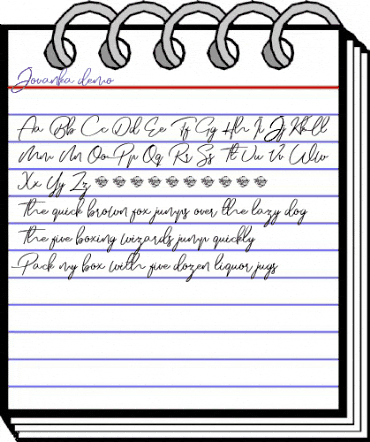 Jovanka demo
Aa Bb Cc Dd Ee Ff Gg Hh Ii Jj Kk Ll
Mm Nn Oo Pp Qq Rr Ss Tt Uu Vv Ww
Xx Yy Zz
The quick brown fox jumps over the lazy dog
The five boxing wizards jump quickly
Pack my box with five dozen liquor jugs